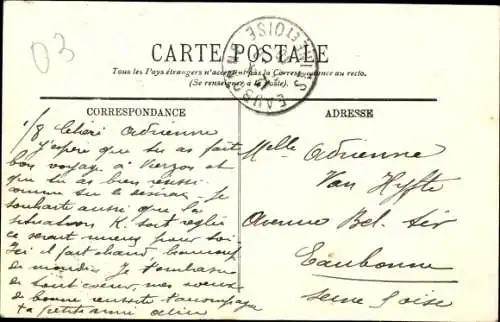 03
CARTE POSTALE
Tous les Pays étrangers n'acceptent pas la Correspondance au recto.
(Se renseigner à la Poste).
CORRESPONDANCE
ADRESSE
1/8 Chère Adrienne
J'espère que tu as fait
bon voyage à Vierzon et
que tu as bien réussi
comme sur le dessin, Je
souhaite aussi que la
situation K. soit réglée
ce serait mieux pour toi
Ici il fait chaud, beaucoup
de monde. Je t'embrasse
de tout cœur, mes vœux
de bonne réussite t'accompagne
ta petite amie
Melle Adrienne
Van Hyfte
Avenue Bel-Air
Eaubonne
Seine & Oise